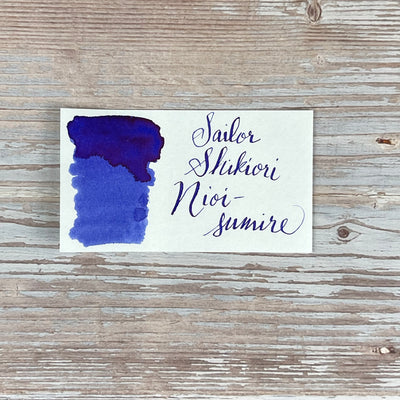 Sailor
Shikiori
Nioi-
sumire